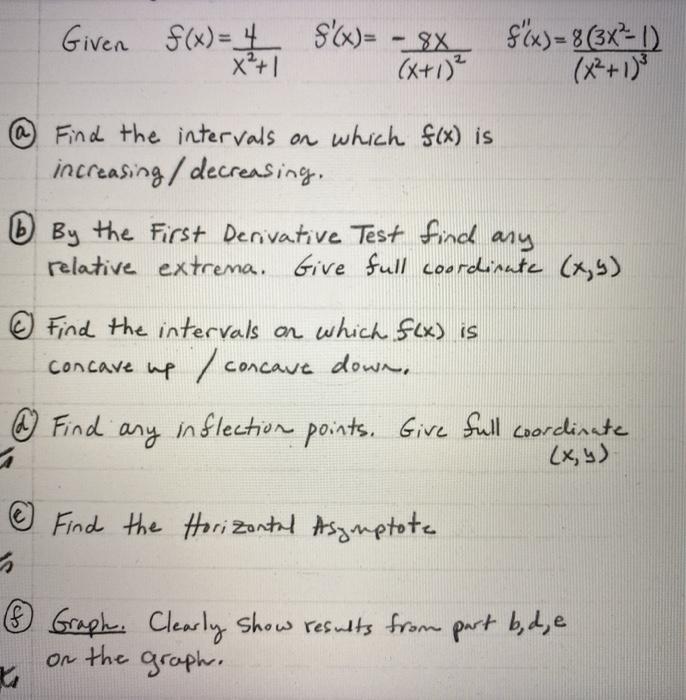 Given f(x) = 4/(x²+1) f'(x) = -8x/(x+1)² f''(x) = 8(3x²-1)/(x²+1)³
(a) Find the intervals on which f(x) is
increasing / decreasing.
(b) By the First Derivative Test find any
relative extrema. Give full coordinate (x,y)
(c) Find the intervals on which f(x) is
concave up / concave down.
(d) Find any inflection points. Give full coordinate
(x,y)
(e) Find the Horizontal Asymptote
(f) Graph. Clearly show results from part b,d,e
on the graph.